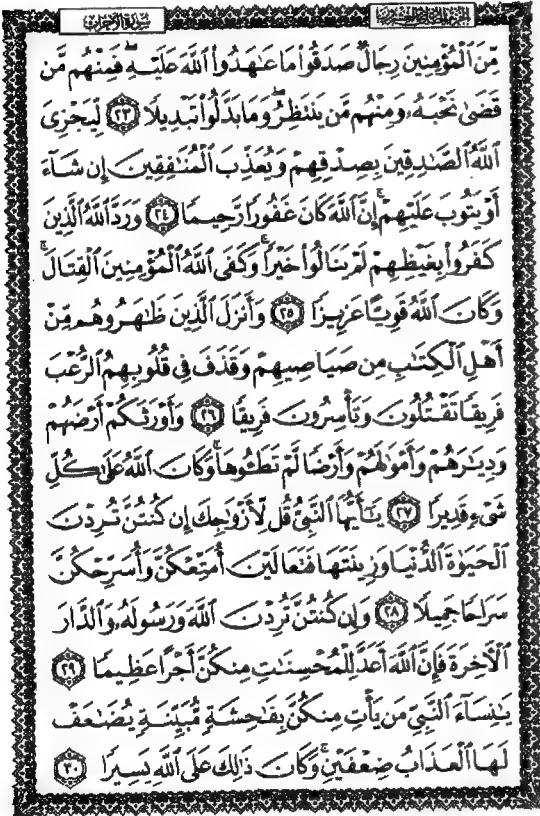 سُورَةُ الأَحْزَابِ
مِّنَ ٱلْمُؤْمِنِينَ رِجَالٌ صَدَقُوا۟ مَا عَـٰهَدُوا۟ ٱللَّهَ عَلَيْهِ ۖ فَمِنْهُم مَّن
قَضَىٰ نَحْبَهُۥ وَمِنْهُم مَّن يَنتَظِرُ ۖ وَمَا بَدَّلُوا۟ تَبْدِيلًا ٢٣ لِّيَجْزِىَ
ٱللَّهُ ٱلصَّـٰدِقِينَ بِصِدْقِهِمْ وَيُعَذِّبَ ٱلْمُنَـٰفِقِينَ إِن شَآءَ
أَوْ يَتُوبَ عَلَيْهِمْ ۚ إِنَّ ٱللَّهَ كَانَ غَفُورًا رَّحِيمًا ٢٤ وَرَدَّ ٱللَّهُ ٱلَّذِينَ
كَفَرُوا۟ بِغَيْظِهِمْ لَمْ يَنَالُوا۟ خَيْرًا ۚ وَكَفَى ٱللَّهُ ٱلْمُؤْمِنِينَ ٱلْقِتَالَ ۚ
وَكَانَ ٱللَّهُ قَوِيًّا عَزِيزًا ٢٥ وَأَنزَلَ ٱلَّذِينَ ظَـٰهَرُوهُم مِّنْ
أَهْلِ ٱلْكِتَـٰبِ مِن صَيَاصِيهِمْ وَقَذَفَ فِى قُلُوبِهِمُ ٱلرُّعْبَ
فَرِيقًا تَقْتُلُونَ وَتَأْسِرُونَ فَرِيقًا ٢٦ وَأَوْرَثَكُمْ أَرْضَهُمْ
وَدِيَـٰرَهُمْ وَأَمْوَٰلَهُمْ وَأَرْضًا لَّمْ تَطَـُٔوهَا ۚ وَكَانَ ٱللَّهُ عَلَىٰ كُلِّ
شَىْءٍ قَدِيرًا ٢٧ يَـٰٓأَيُّهَا ٱلنَّبِىُّ قُل لِّأَزْوَٰجِكَ إِن كُنتُنَّ تُرِدْنَ
ٱلْحَيَوٰةَ ٱلدُّنْيَا وَزِينَتَهَا فَتَعَالَيْنَ أُمَتِّعْكُنَّ وَأُسَرِّحْكُنَّ
سَرَاحًا جَمِيلًا ٢٨ وَإِن كُنتُنَّ تُرِدْنَ ٱللَّهَ وَرَسُولَهُۥ وَٱلدَّارَ
ٱلْـَٔاخِرَةَ فَإِنَّ ٱللَّهَ أَعَدَّ لِلْمُحْسِنَـٰتِ مِنكُنَّ أَجْرًا عَظِيمًا ٢٩
يَـٰنِسَآءَ ٱلنَّبِىِّ مَن يَأْتِ مِنكُنَّ بِفَـٰحِشَةٍ مُّبَيِّنَةٍ يُضَـٰعَفْ
لَهَا ٱلْعَذَابُ ضِعْفَيْنِ ۚ وَكَانَ ذَٰلِكَ عَلَى ٱللَّهِ يَسِيرًا ٣٠